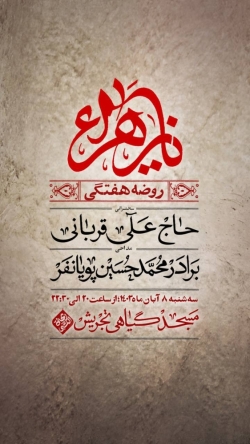 یا زهرا
روضه هفتگی
سخنرانی
حاج علی قربانی
مداحی
برادر محمدحسین پویانفر
سه‌شنبه ۸ آبان ماه ۱۴۰۳؛ از ساعت ۲۰ الی ۲۲:۳۰
مسجد گیاهی تجریش